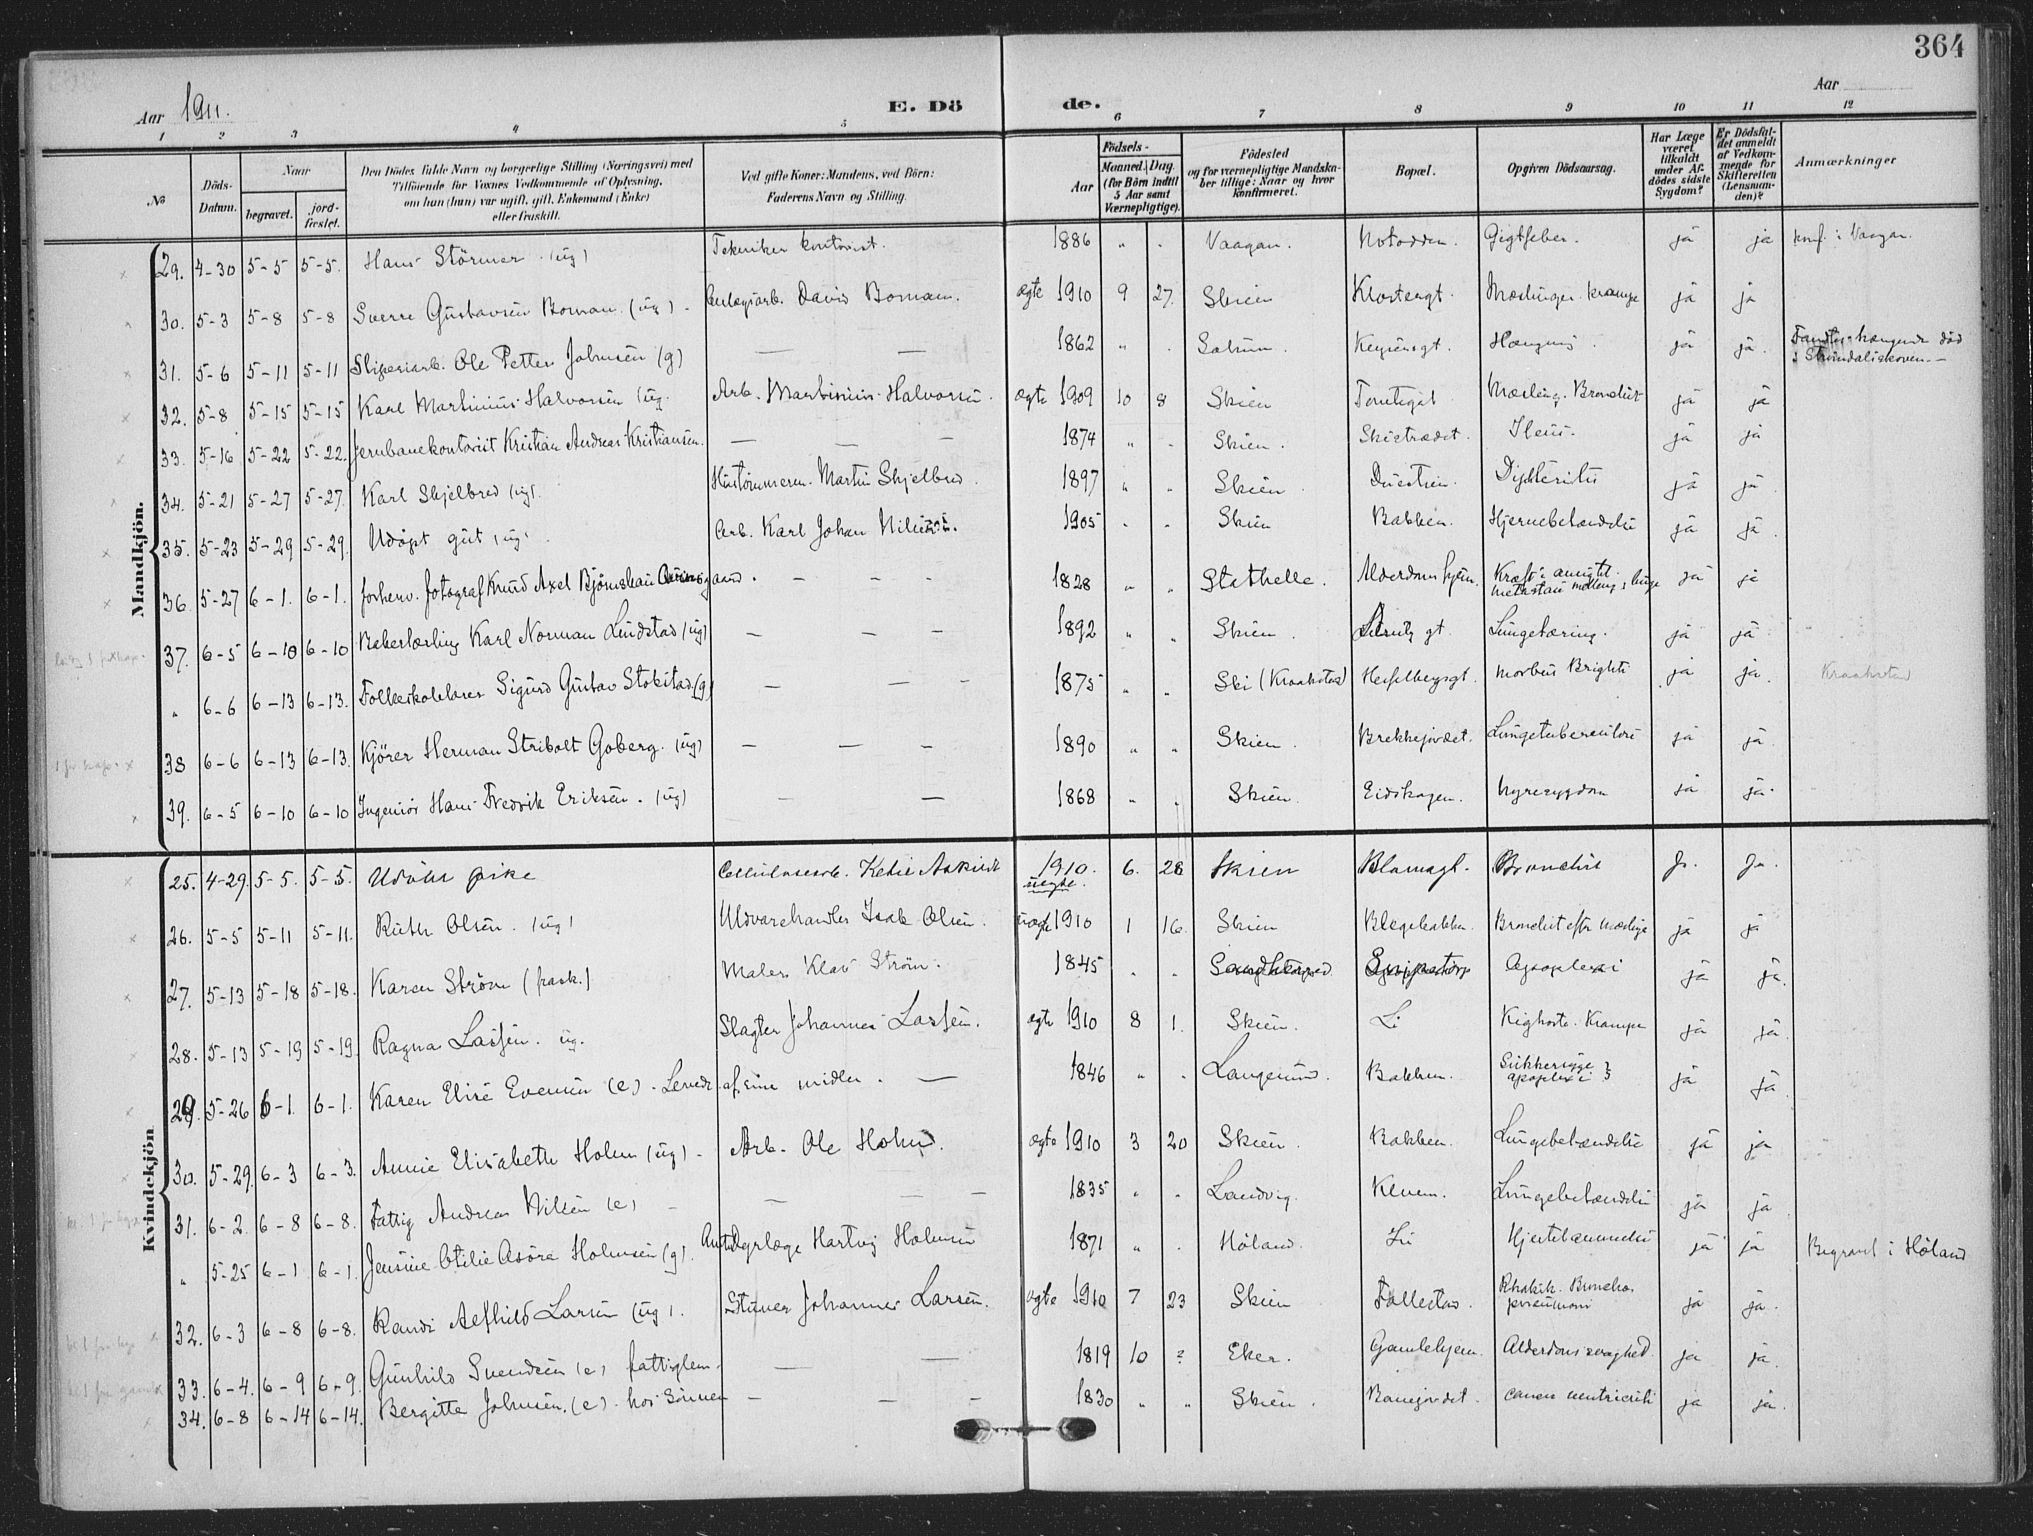 364
Aar 1911.
E. Dö
de.
Aar
1 2 3 4 5 6 7 8 9 10 11 12
№
Döds-Datum.
Naar
begravet.
jord-fæstet.
Den Dödes fulde Navn og borgerlige Stilling (Næringsvei) med Tilföiende for Voxnes Vedkommende af Oplysning, om han (hun) var ugift, gift, Enkemand (Enke) eller fraskilt.
Ved gifte Koner: Mandens, ved Börn: Faderens Navn og Stilling.
Födsels-
Aar
Maaned. Dag.
(for Börn indtil 5 Aar samt Værnepligtige).
Födested og for værnepligtige Mandskaber tillige: Naar og hvor konfirmeret.
Bopæl.
Opgiven Dödsaarsag.
Har Læge været tilkaldt under Afdödes sidste Sygdom?
Er Dödsfaldet anmeldt af Vedkommende for Skifteretten (Lensmanden)?
Anmærkninger
Mandkjön.
29. 4-30 5-5 5-5. Hans Störmer (ug) Tekniker kontorist. 1886 " " Vaagan. Notodden. Gigtfeber. ja ja konf. i Vaagan.
30. 5-3 5-8 5-8 Sverre Gustavsen Boman (ug) - David Boman. ægte 1910 9 27. Skien Klostergt. Mæslinger. krampe ja ja
31. 5-6 5-11 5-11 Sliperiarb. Ole Petter Johnsen (g) — — 1862 " " Solum. Keysersgt. Hængning. ja ja. Fandtes hængende död i Strömdalskoven. -
32. 5-8 5-15 5-15 Karl Martinius Halvorsen (ug. Arb. Martinius Halvorsen. ægte 1909 10 8 Skien Mæsling. Bronchit ja ja
33. 5-16 5-22 5-22. Jernbanekontorist Kristian Andreas Kristiansen. — — — 1874 " " Skien. Skistrædet. Ileus. ja ja
34. 5-21 5-27 5-27. Karl Skjelbred (ug). Martin Skjelbred. 1897 " " Skien. Duestien. Difteritis ja ja.
35. 5-23 5-29 5-29. Udöpt gut (ug) Arb. Karl Johan Nilsen. 1905 " " Skien Bakken. Hjernebetændelse ja ja.
36. 5-27 6-1. 6-1. forhenv. fotograf Knud Axel Björnskau gaard. - - - 1828 " " Stathelle. Alderdomshjem. Kræft i ja ja
37. 6-5 6-10 6-10 Bakerlærling Karl Norman Lundstad (ug) — — — 1892 " " Skien. gt. Lungetæring. ja ja
" 6-6 6-13 6-13. Folkeskolelærer Sigurd Gustav Stokstad (g) — — — 1875 " " Ski (Kraakstad) Hesselbergsgt. Morbus Brighti ja ja. Kraakstad
38 6-6 6-13 6-13. Kjörer Herman Stribolt Goberg. (ug) — — — 1890 " " Skien. Brekkejordet. Lungetuberculose ja ja.
39. 6-5 6-10 6-10 Ingeniör Hans Fredrik Eriksen. (ug) — — 1868 " " Skien. Eidskogen. Nyresygdom ja ja.
Kvindekjön
25. 4-29. 5-5. 5-5. Udöbt pike Cellulosearb. Ketil 1910. uegte. 6. 28 Skien Blomsgt. Bronchit Ja. Ja.
26. 5-5 5-11 5-11. Ruth Olsen. (ug) Uldvarehandler Isak Olsen. uægte 1910 1 16. Skien Blegebakken. Bronchit efter Mæslinge ja ja
27. 5-13 5-18 5-18. Karen Ström (frask.) Maler Klaus Ström. 1845 " " Apoplexi ja ja.
28. 5-13 5-19 5-19. Ragna Larsen. ug. Slagter Johannes Larsen. ægte 1910 8 1. Skien. Li Kighoste. Krampe ja ja.
29. 5-26 6-1. 6-1. Karen Elise Evensen (e) - Levede af sine midler. — 1846 " " Langesund. Bakken. Sukkersyge apoplexi ja ja.
30. 5-29. 6-3 6-3. Annie Elisabeth Holm (ug) - Arb. Ole Holm. ægte 1910 3 20 Skien. Bakken. Lungebetændelse ja ja
31. 6-2. 6-8 6-8. Fattig Andrea Nilsen (e) — — — 1835 " " Landvig. Kleven. Lungebetændelse ja ja.
" 5-25 6-1 6-1. Jensine Otilie Asöra Holmsen (g). Amtsdyrlæge Hartvig Holmsen 1871 " " Höland. Li Hjertelammelse ja ja Begravet i Höland
32. 6-3 6-8 6-8. Randi Alfhild Larsen (ug). Johannes Larsen. ægte 1910 7 23 Skien Follestad. Rhakit. Bronchopneumoni ja ja.
33. 6-4. 6-9 6-9. Gunhild Svendsen (e) fattiglem. — — 1819 10 ? Eker. Gamlehjem. Alderdomssvaghed. ja ja.
34. 6-8 6-14 6-14. Bergitte Johnsen. (e) hos Sönnen — — — 1830 " " Skien. Banejordet. cancer ventriculi ja ja.